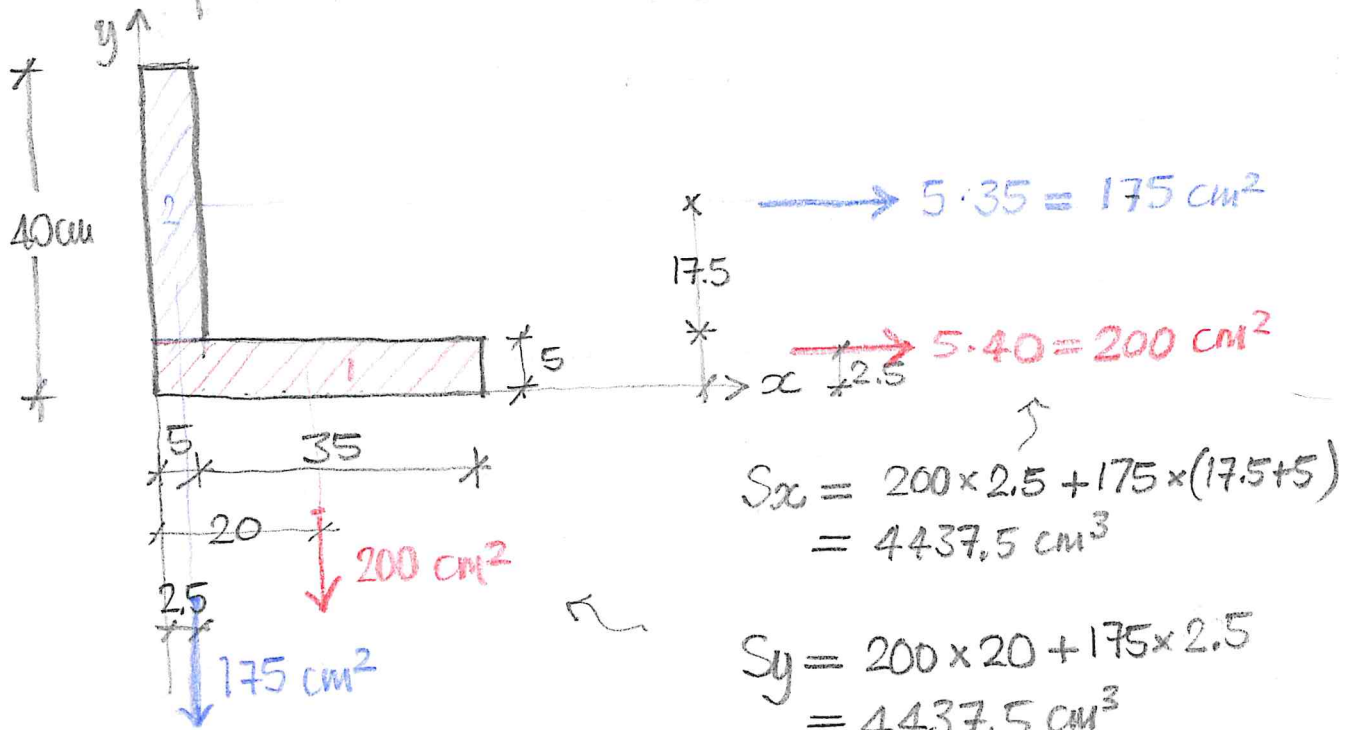 y
40cm
2
1
5
5 35
20
200 cm²
2.5
175 cm²
x
17.5
x
2.5
5·35 = 175 cm²
5·40 = 200 cm²
Sx = 200×2.5 + 175×(17.5+5)
= 4437.5 cm³
Sy = 200×20 + 175×2.5
= 4437.5 cm³